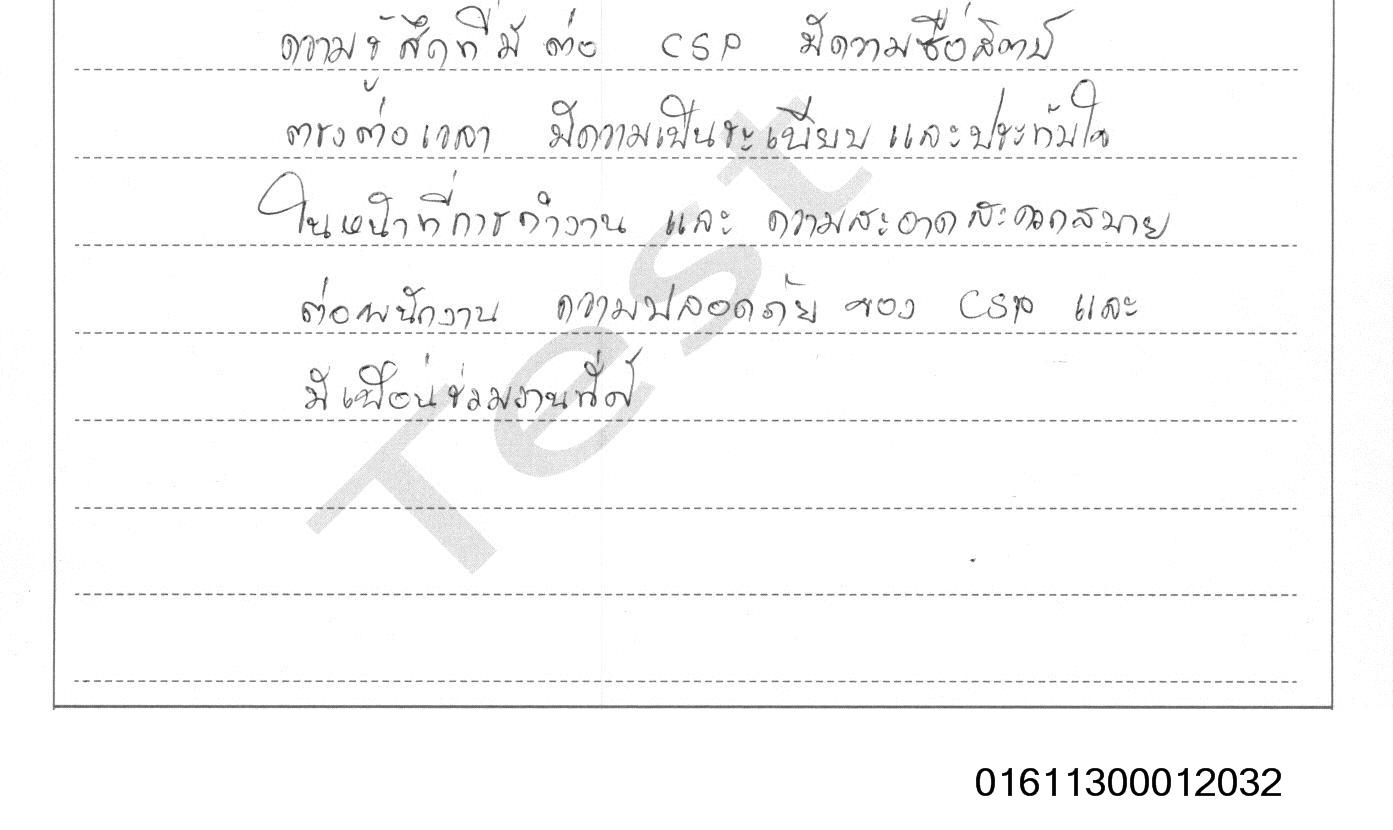 ความรู้สึกที่มี ต่อ CSP มีความซื่อสัตย์
ตรงต่อเวลา มีความเป็นระเบียบ และประทับใจ
ในหน้าที่การทำงาน และ ความสะอาดสะดวกสบาย
ต่อพนักงาน ความปลอดภัย ของ CSP และ
มีเพื่อนร่วมงานที่ดี
Test
01611300012032